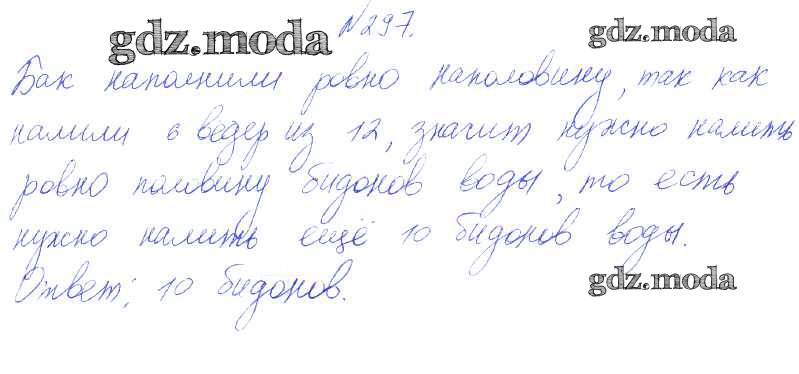 gdz.moda №297. gdz.moda
Бак наполнили ровно наполовину, так как
налили 6 ведер из 12, значит нужно налить
ровно половину бидонов воды, то есть
нужно налить ещё 10 бидонов воды.
Ответ: 10 бидонов. gdz.moda